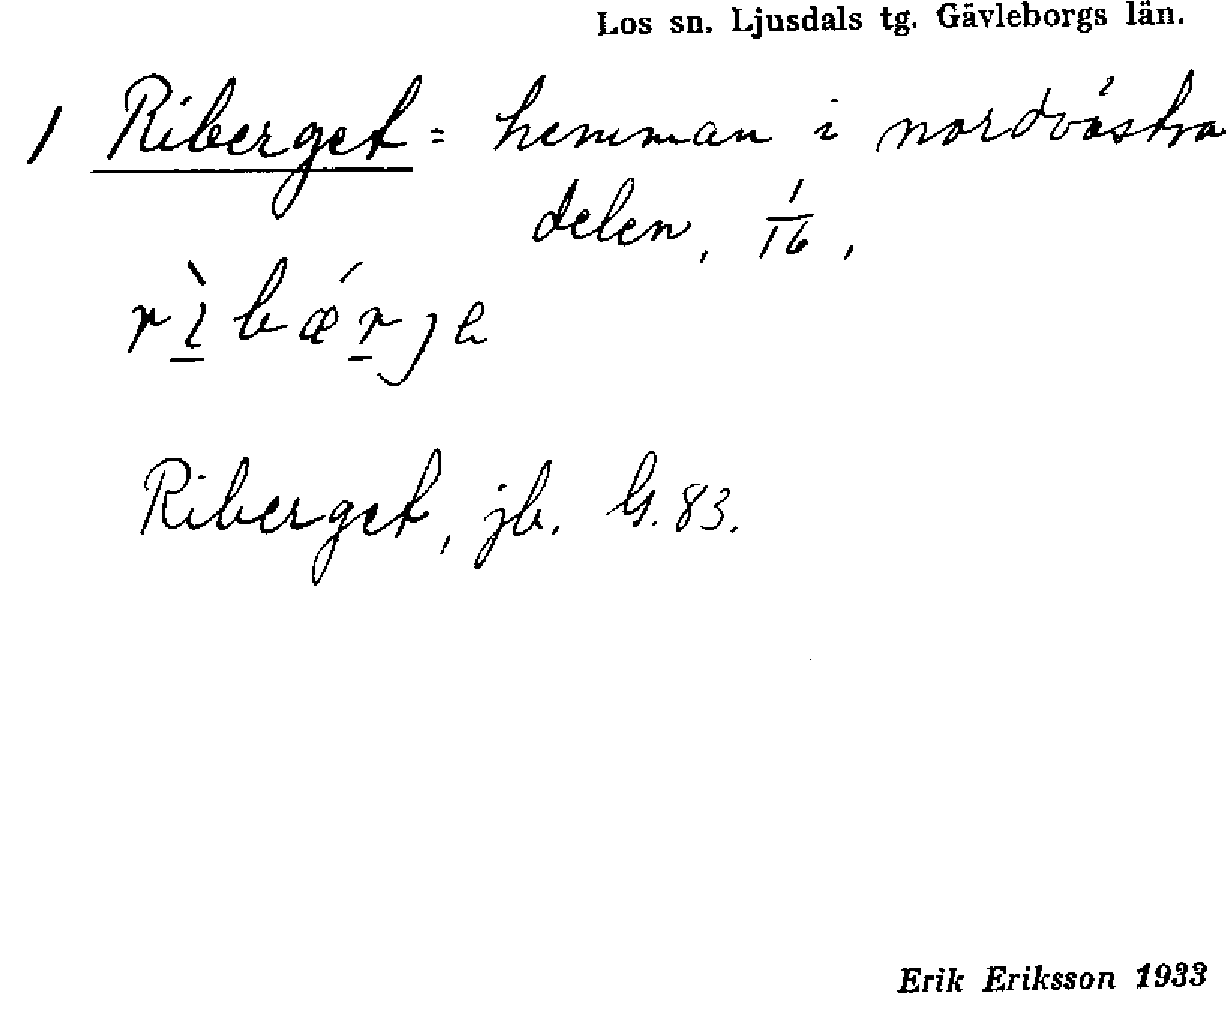 Los sn. Ljusdals tg. Gävleborgs län.
1 Riberget = hemman i nordvästra
delen, 1/16,
rìbǽrje
Riberget, jb. G. 83.
Erik Eriksson 1933